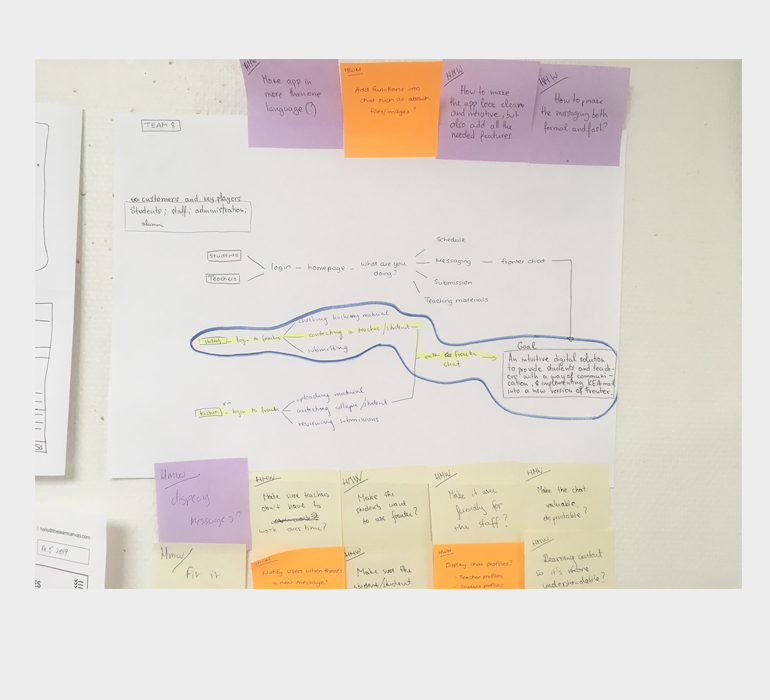 HMW
Make app in
more humane
language(?)
HWM
Add functions into
chat such as attach
files/images?
HMW
How to make
the app look clean
and intuitive, but
also add all the
needed features
HMW
How to make
the messaging both
formal and fast?
TEAM 8
customers and key players
Students; staff; administration;
Students
Teachers
login — homepage — what are you
doing?
Schedule
Messaging — fronter chat
Submission
Teaching materials
login to fronter
contacting a teacher/student
submitting
enter fronter
chat
Goal
An intuitive digital solution
to provide students and teach-
ers with a way of communi-
cation, & implementing KEA mail
into a new version of fronter.
login to fronter
uploading material
contacting collegue/student
reviewing submissions
Hmw
display
messages?
HMW
Make sure teachers
don't have to
work overtime?
HMW
Make the
students want
to use fronter?
HMW
Make it user
friendly for
the staff?
HMW
Make the chat
valuable
dependable?
Hmw/
fix it
Notify users when there's
a new message?
HMW
Make sure the
student/student
HWM
Display chat profiles?
- Teacher profiles
HMW
content
so it's more
understandable?
hello@theteamcanvas.com